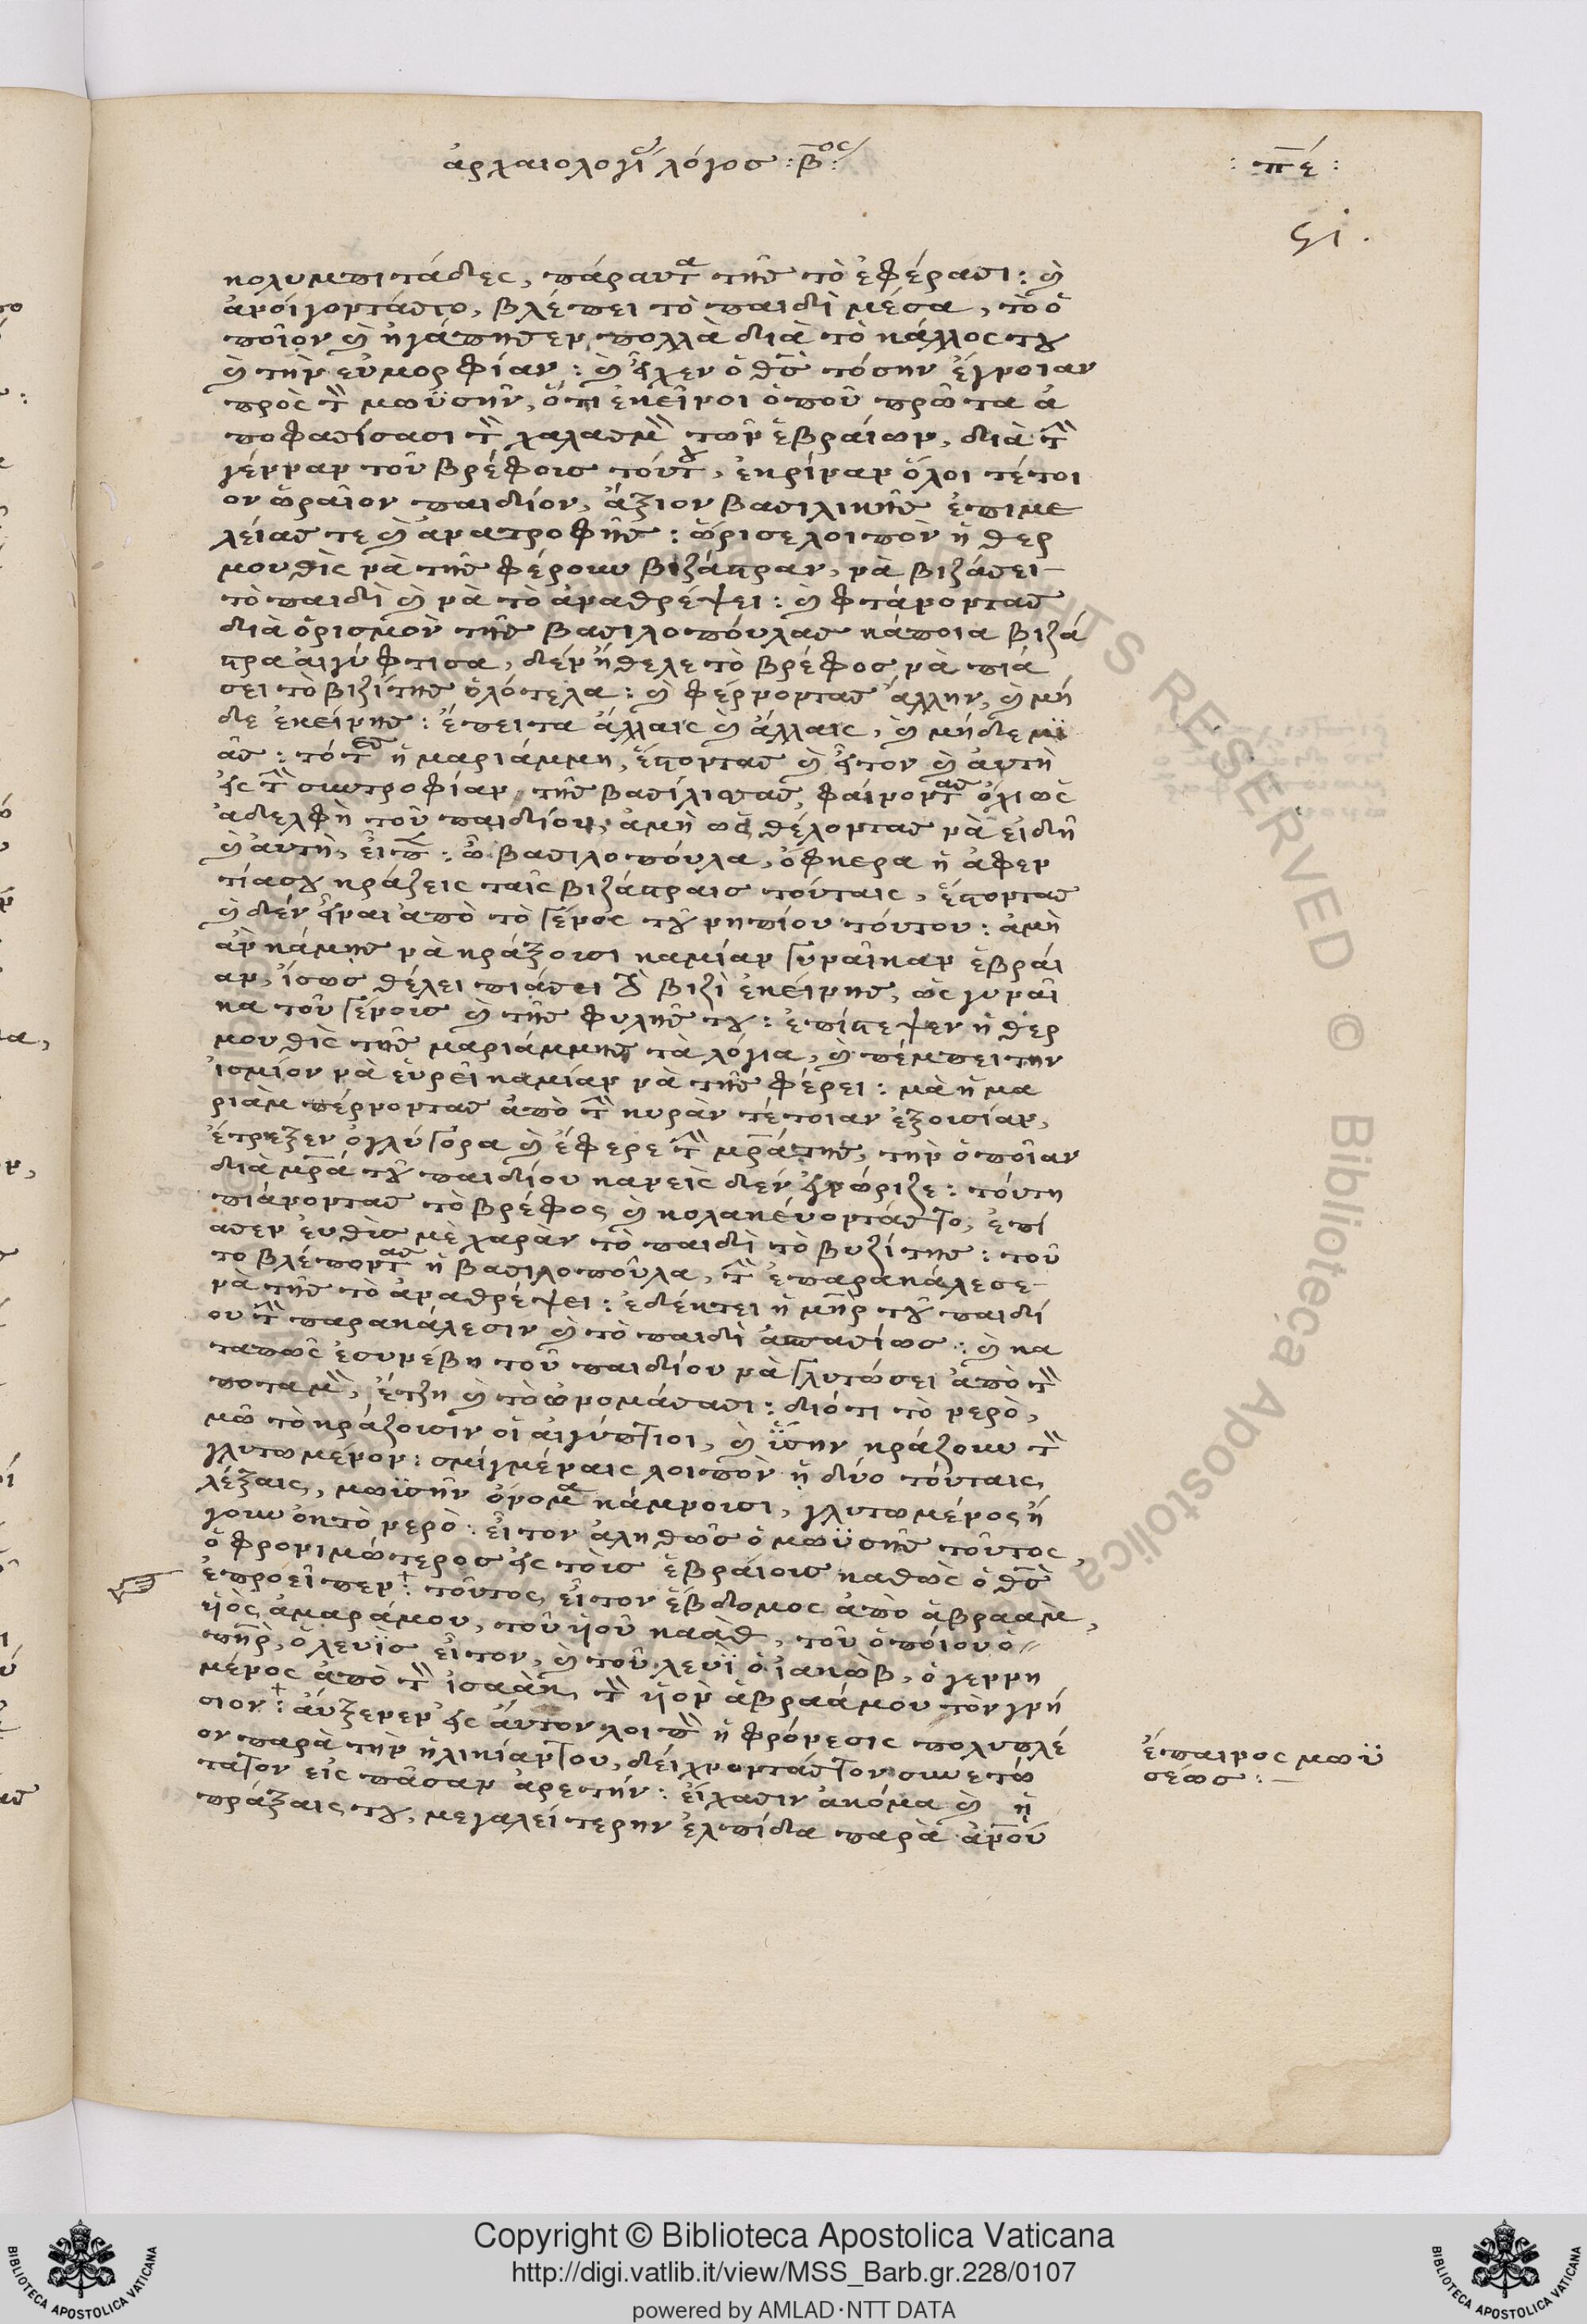 ἀρχαιολογί λόγος : β^ος
: πέ :
51.
κολυμπιτάδες, πάραυτα τῆς τὸ ἐφέρασι : καὶ
ἀνοίγοντάςτο, βλέπει τὸ παιδὶ μέσα, τὸ ὁ
ποῖον καὶ ἠγάπησεν πολλὰ διὰ τὸ κάλλος του
καὶ τὴν εὐμορφίαν : καὶ εἶχεν ὁ θς τόσην ἔγνοιαν
πρὸς τὸν μωϋσῆν, ὅτι ἐκεῖνοι ὁποῦ πρῶτα ἀ
ποφασίσασι τὸν χαλασμὸν τῶν ἑβραίων, διὰ τὴν
γένναν τοῦ βρέφους τούτου, ἐκρίναν ὅλοι τέτοι
ον ὡραῖον παιδίον, ἄξιον βασιλικῆς ἐπιμε
λείας τε καὶ ἀνατροφῆς : ὥρισε λοιπὸν ἡ θερ
μουθὶς νὰ τῆς φέρουν βιζάστραν, νὰ βιζάσει
τὸ παιδὶ καὶ νὰ τὸ ἀναθρέψει : καὶ φτάνοντας
διὰ ὁρισμὸν τῆς βασιλοπούλας κάποια βιζά
στρα αἰγύφτισα, δὲν ἤθελε τὸ βρέφος νὰ πιά
σει τὸ βιζίτης ὁλότελα : καὶ φέρνοντας ἄλλην, καὶ μή
δε ἐκείνης : ἔπειτα ἄλλαις καὶ ἄλλαις, καὶ μήδε μϊ
ᾶς : τότες ἡ μαριάμμη, ἔστοντας καὶ εἶτον καὶ αὐτὴ
εἰς τὴν συντροφίαν τῆς βασίλισσας, φαίνοντας ὄχι ὡς
ἀδελφὴ τοῦ παιδίου, ἀμὴ ὡς θέλοντας νὰ εἰδῆ
καὶ αὐτὴ, εἶπεν : ὦ βασιλοπούλα, ὄφκερα ἡ ἀφεν
τίασου κράζεις ταῖς βιζάστραις τούταις, ἔστοντας
καὶ δὲν εἶναι ἀπὸ τὸ γένος τοῦ νηπίου τούτου : ἀμὴ
ἂν κάμης νὰ κράξουσι καμίαν γυναῖκαν ἑβραί
αν, ἴσως θέλει πιάσει τὸ βιζὶ ἐκείνης, ὡς γυναῖ
κα τοῦ γένους καὶ τῆς φυλῆς του : ἐπίστεψεν ἡ θερ
μουθὶς τῆς μαριάμμης τὰ λόγια, καὶ πέμπει την
ἰσμίον νὰ εὑρεῖ καμίαν νὰ τῆς φέρει : μὰ ἡ μα
ριὰμ πέρνοντας ἀπὸ τὴν κυρὰν τέτοιαν ἐξουσίαν,
ἔτρεξεν ὀγλύγορα καὶ ἔφερε τὴν μρα της, τὴν ὁποῖαν
διὰ μρα τοῦ παιδίου κανεὶς δὲν ἐγνώριζε : τούτη
πιάνοντας τὸ βρέφος καὶ κολακεύοντάςτο, ἐπί
ασεν εὐθὺς μὲ χαρὰν τὸ παιδὶ τὸ βυζίτης : τοῦ
το βλέποντας ἡ βασιλοποῦλα, τὴν ἐπαρακάλεσε
νὰ τῆς τὸ ἀναθρέψει : ἐδέκτει ἡ μηρ τοῦ παιδί
ου τὴν παρακάλεσιν καὶ τὸ παιδὶ ἀπασίως : καὶ κα
ταπῶς ἐσυνέβη τοῦ παιδίου νὰ γλυτώσει ἀπὸ τὸν
ποταμὸν, ἔτζη καὶ τὸ ὠνομάσασι : διότι τὸ νερὸ,
μῶ τὸ κράζουσιν οἱ αἰγύπτιοι, καὶ ΰσην κράζουν τὸν
γλυτωμένον : σμίγμέναις λοιπὸν ἡ δύο τούταις
λέξαις, μωϊσῆν ὄνομα κάμνουσι, γλυτωμένος ἤ
γουν ἐκ τὸ νερὸ : εἶτον ἀληθῶς ὁ μωϋσῆς τοῦτος,
ὁ φρονιμώτερος εἰς τοὺς ἑβραίους καθὼς ὁ θς
ἐπροεῖπεν : τοῦτος εἶτον ἕβδομος ἀπὸ ἀβραὰμ,
ϋἱὸς ἀμαράμου, τοῦ ϋἱοῦ καὰθ, τοῦ ὁποίου ὁ
πηρ, ὁ λευῒς εἶτον, καὶ τοῦ λευῒ ὁ ἰακὼβ, ὁ γεννη
μένος ἀπὸ τὸν ἰσαὰκ, τὸν ϋἱὸν ἀβραάμου τὸν γνή
σιον : αὔξενεν εἰς αὐτον λοιπὸν ἡ φρόνεσις πολυπλέ
ον παρὰ τὴν ἡλικίαντου, δείχνοντάςτον συνετώ
τατον εἰς πᾶσαν ἀρετήν : εἴχασιν ἀκόμα καὶ ἡ
πράξαις του, μεγαλείτερην ἐλπίδα παρὰ ἀνοῦ
ἔπαινος μωϋ
σέως : —